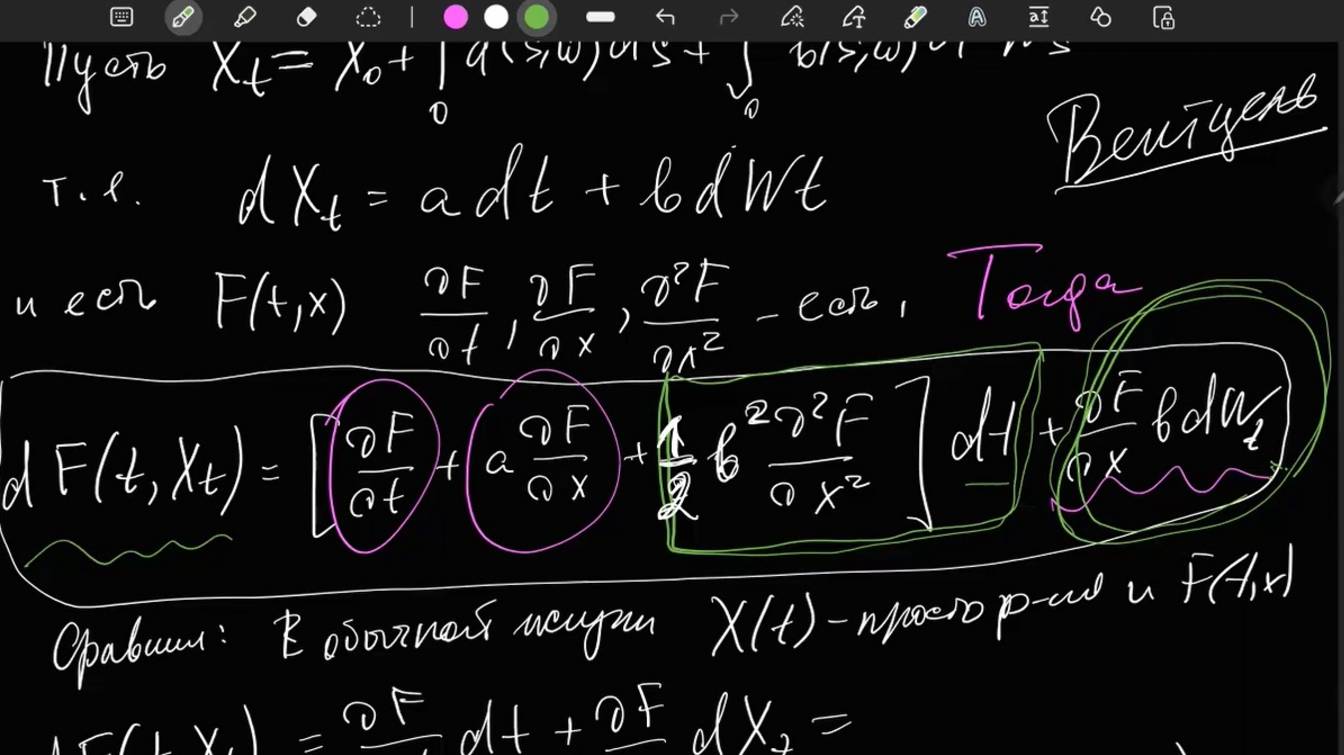 Пусть X_t = X_0 + ∫_0 a(s,ω)ds + ∫_0 b(s,ω)dW_s
Вентцель
т.е. dX_t = a dt + b dW_t
и есть F(t,x) ∂F/∂t, ∂F/∂x, ∂²F/∂x² - есть, Тогда
dF(t,X_t) = [∂F/∂t + a ∂F/∂x + 1/2 b² ∂²F/∂x²] dt + ∂F/∂x b dW_t
Сравним: В обычной X(t) - просто ф-ция и F(t,x)
dF(t,X_t) = ∂F dt + ∂F dX_t =